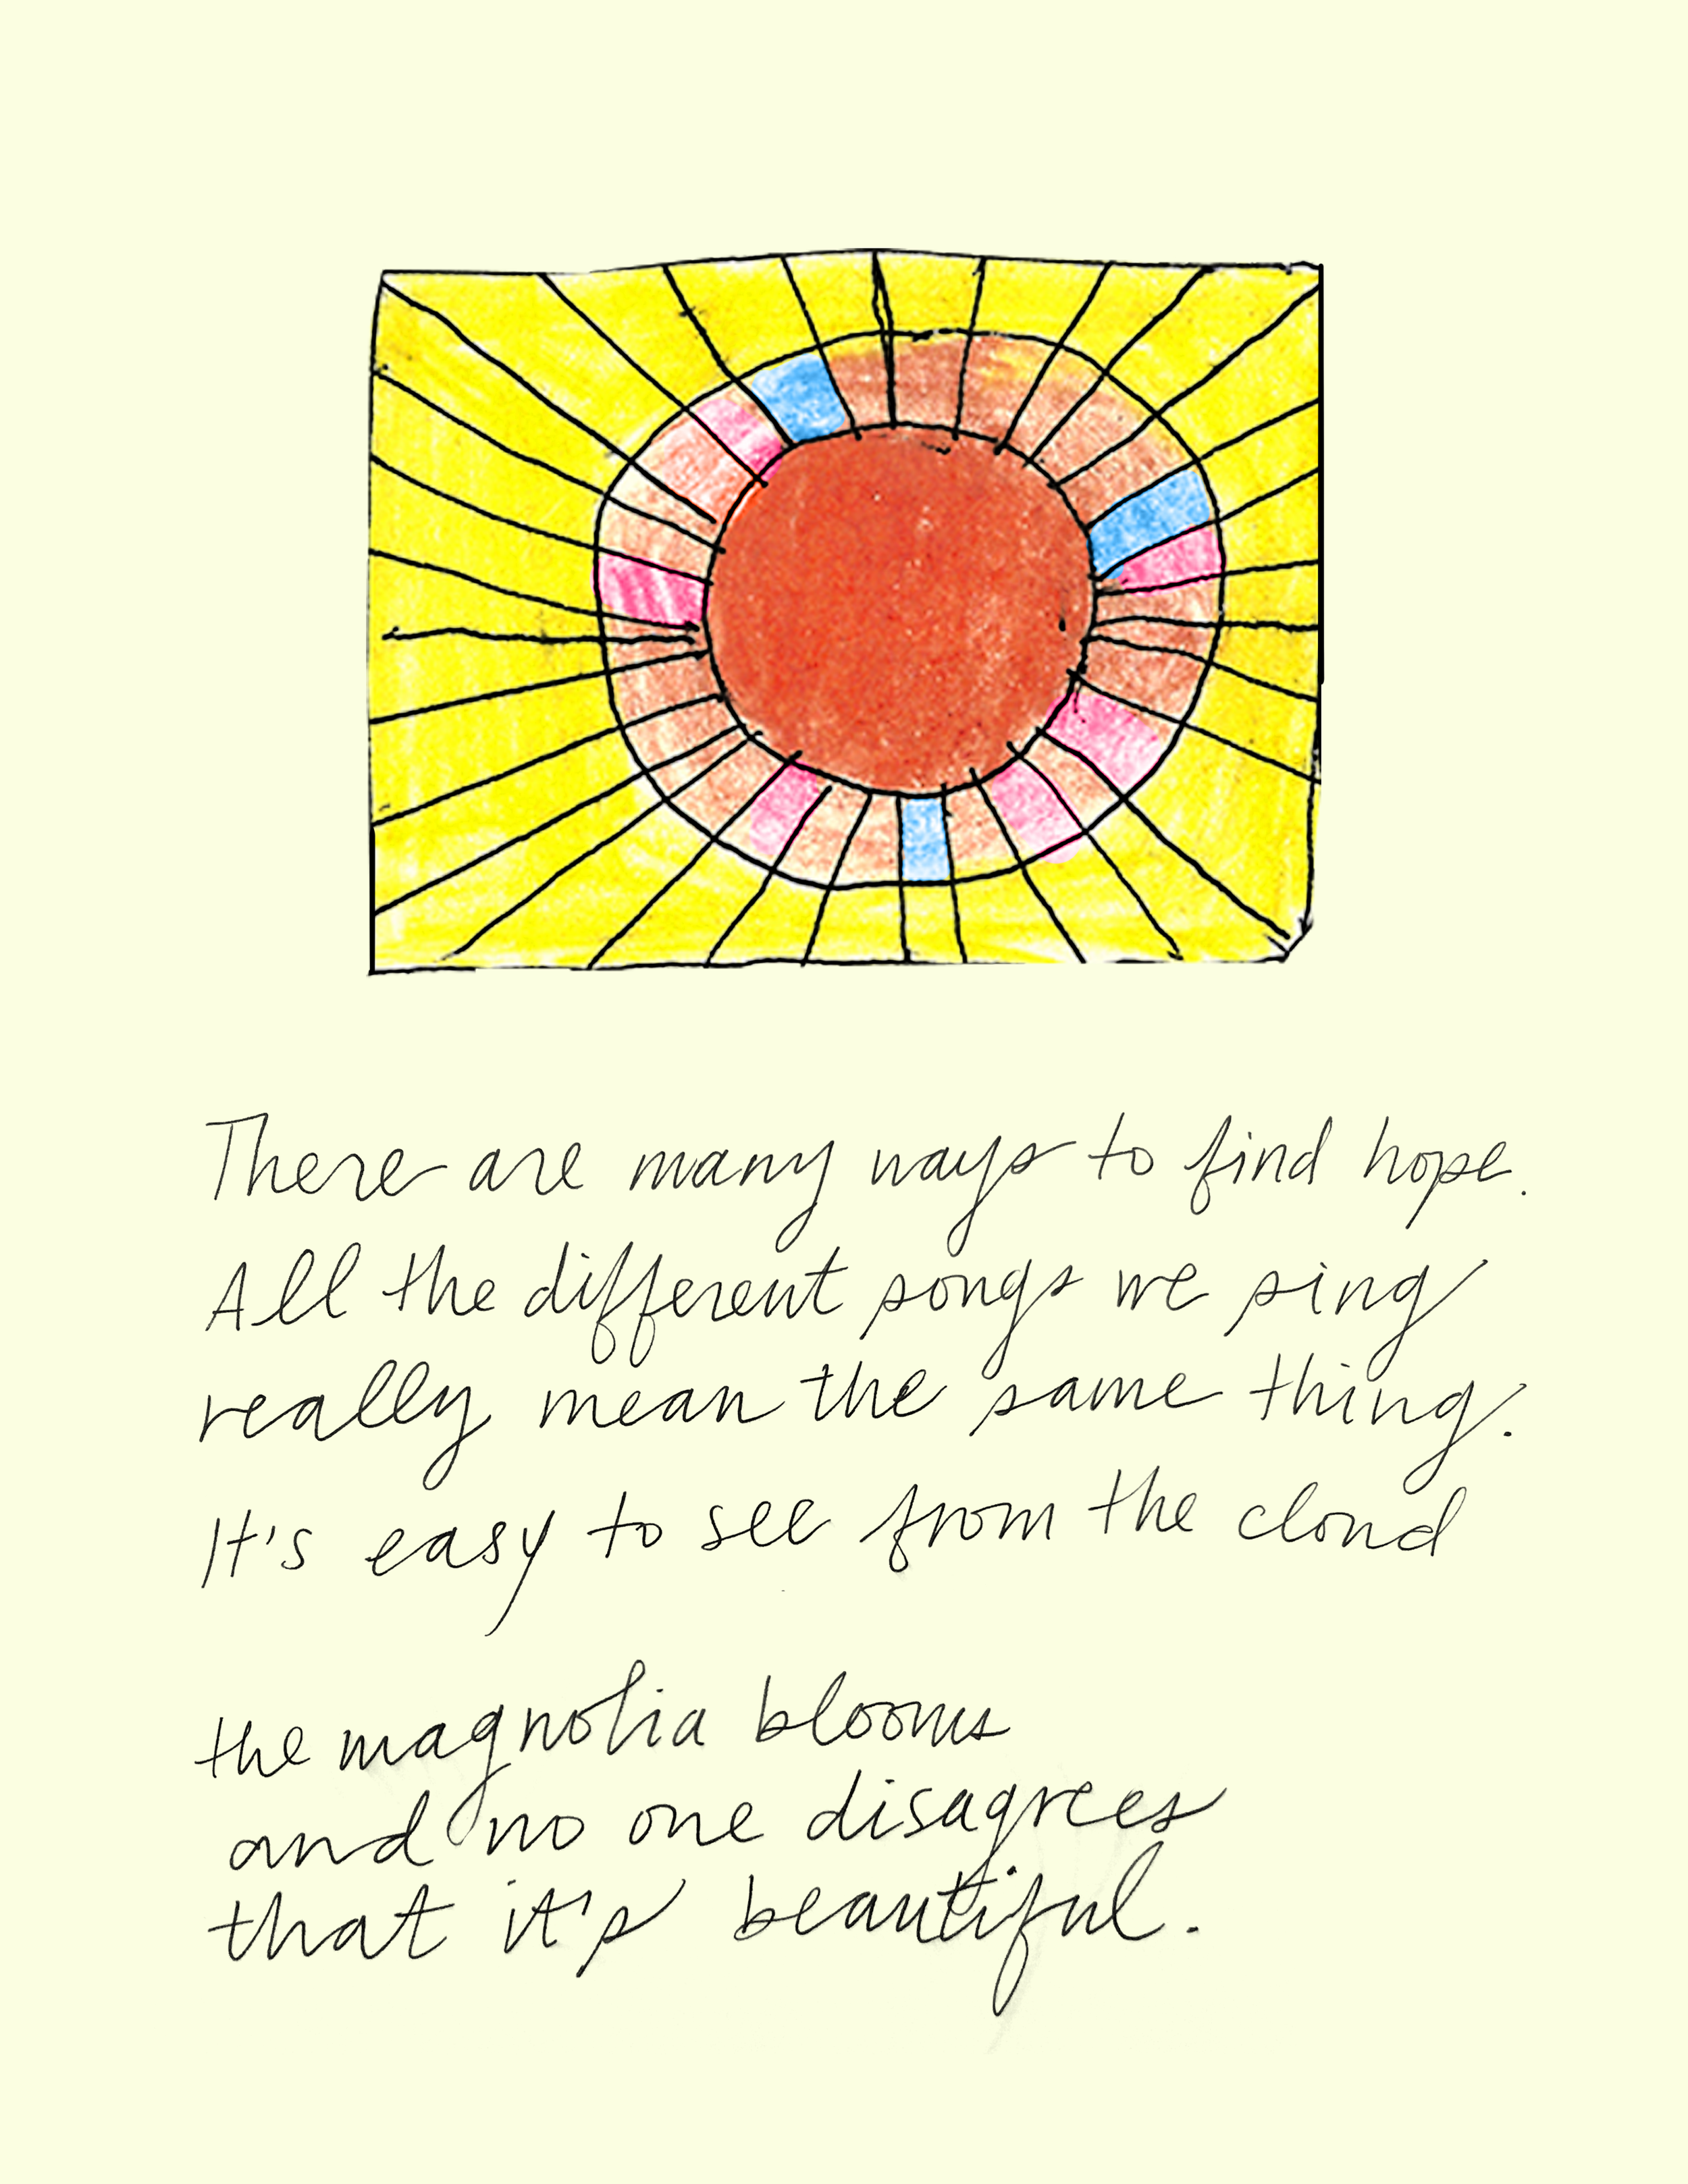 There are many ways to find hope.
All the different songs we sing
really mean the same thing.
It's easy to see from the cloud
the magnolia blooms
and no one disagrees
that it's beautiful.